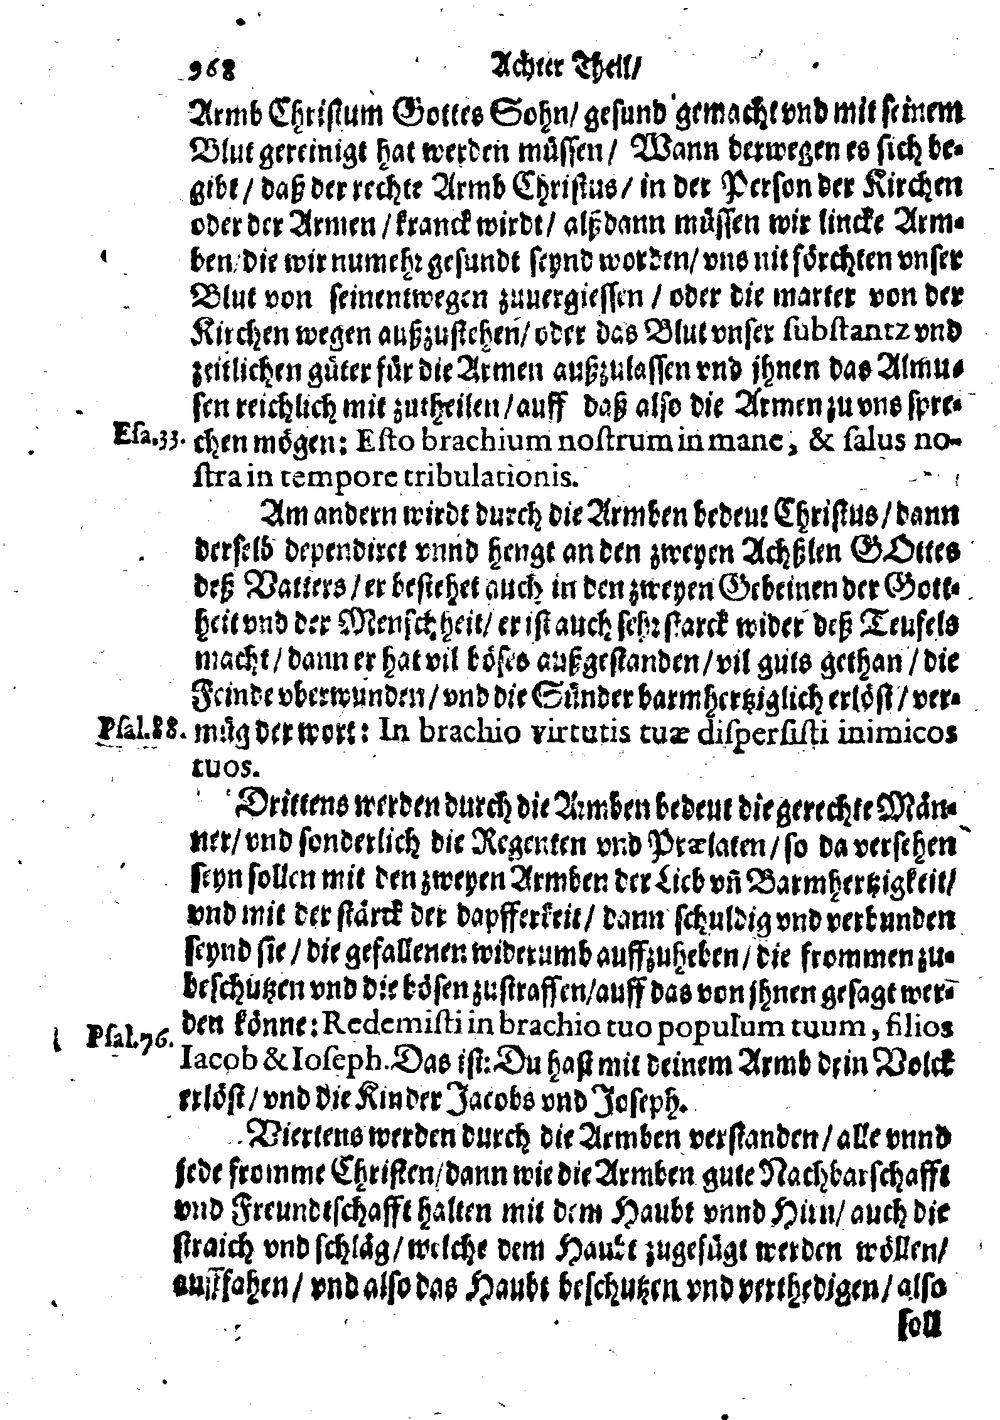 968 Achter Theil/
Armb Christum Gottes Sohn/ gesund gemacht vnd mit seinem
Blut gereinigt hat werden müssen/ Wann derwegen es sich be-
gibt/ daß der rechte Armb Christus/ in der Person der Kirchen
oder der Armen/ kranck wirdt/ alßdann müssen wir lincke Arm-
ben/ die wir numehr gesundt seynd worden/ vns nit förchten vnser
Blut von seinentwegen zuuergiessen/ oder die marter von der
Kirchen wegen außzustehen/ oder das Blut vnser substantz vnd
zeitlichen güter für die Armen außzulassen vnd jhnen das Almu-
sen reichlich mit zutheilen/ auff daß also die Armen zu vns spre-
Esa.33. chen mögen: Esto brachium nostrum in mane, & salus no-
stra in tempore tribulationis.
Am andern wirdt durch die Armben bedeut Christus/ dann
derselb dependiret vnnd hengt an den zweyen Achßlen GOttes
deß Vatters/ er bestehet auch in den zweyen Gebeinen der Gott-
heit vnd der Menschheit/ er ist auch sehr starck wider deß Teufels
macht/ dann er hat vil böses außgestanden/ vil guts gethan/ die
Feinde vberwunden/ vnd die Sünder barmhertziglich erlöst/ ver-
Psal.88. müg der wort: In brachio virtutis tuæ dispersisti inimicos
tuos.
Drittens werden durch die Armben bedeut die gerechte Män-
ner/ vnd sonderlich die Regenten vnd Prælaten/ so da versehen
seyn sollen mit den zweyen Armben der Lieb vñ Barmhertzigkeit/
vnd mit der stärck der dapfferkeit/ dann schuldig vnd verbunden
seynd sie/ die gefallenen widerumb auffzuheben/ die frommen zu-
beschützen vnd die bösen zustraffen/ auff das von jhnen gesagt wer-
Psal.76. den könne: Redemisti in brachio tuo populum tuum, filios
Iacob & Ioseph. Das ist: Du hast mit deinem Armb dein Volck
erlöst/ vnd die Kinder Jacobs vnd Joseph.
Viertens werden durch die Armben verstanden/ alle vnnd
jede fromme Christen/ dann wie die Armben gute Nachbarschafft
vnd Freundtschafft halten mit dem Haubt vnnd Hirn/ auch die
straich vnd schläg/ welche dem Haubt zugefügt werden wöllen/
auffahen/ vnd also das Haubt beschutzen vnd verthedigen/ also
soll